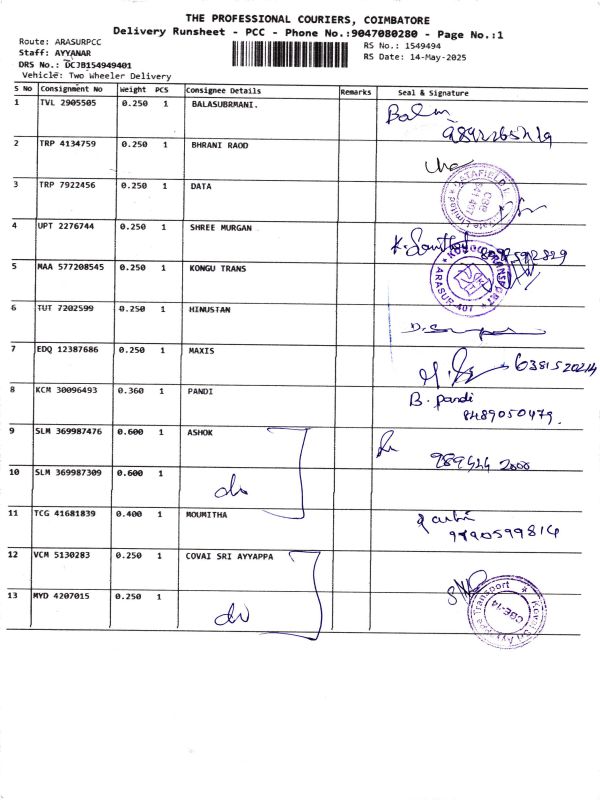 THE PROFESSIONAL COURIERS, COIMBATORE
Delivery Runsheet - PCC - Phone No.:9047080280 - Page No.:1
Route: ARASURPCC
RS No.: 1549494
Staff: AYYANAR
RS Date: 14-May-2025
DRS No.: DCJB154949401
Vehicle: Two Wheeler Delivery
S No Consignment No Weight PCS Consignee Details Remarks Seal & Signature
1 TVL 2905505 0.250 1 BALASUBRMANI.
2 TRP 4134759 0.250 1 BHRANI RAOD
3 TRP 7922456 0.250 1 DATA
4 UPT 2276744 0.250 1 SHREE MURGAN
5 MAA 577208545 0.250 1 KONGU TRANS
ARASUR 407
6 TUT 7202599 0.250 1 HINUSTAN
7 EDQ 12387686 0.250 1 MAXIS
8 KCM 30096493 0.360 1 PANDI B. pandi
8489050479.
9 SLM 369987476 0.600 1 ASHOK
10 SLM 369987309 0.600 1
do
11 TCG 41681839 0.400 1 MOUMITHA
9790599814
12 VCM 5130283 0.250 1 COVAI SRI AYYAPPA
13 MYD 4207015 0.250 1
do
CBE-14